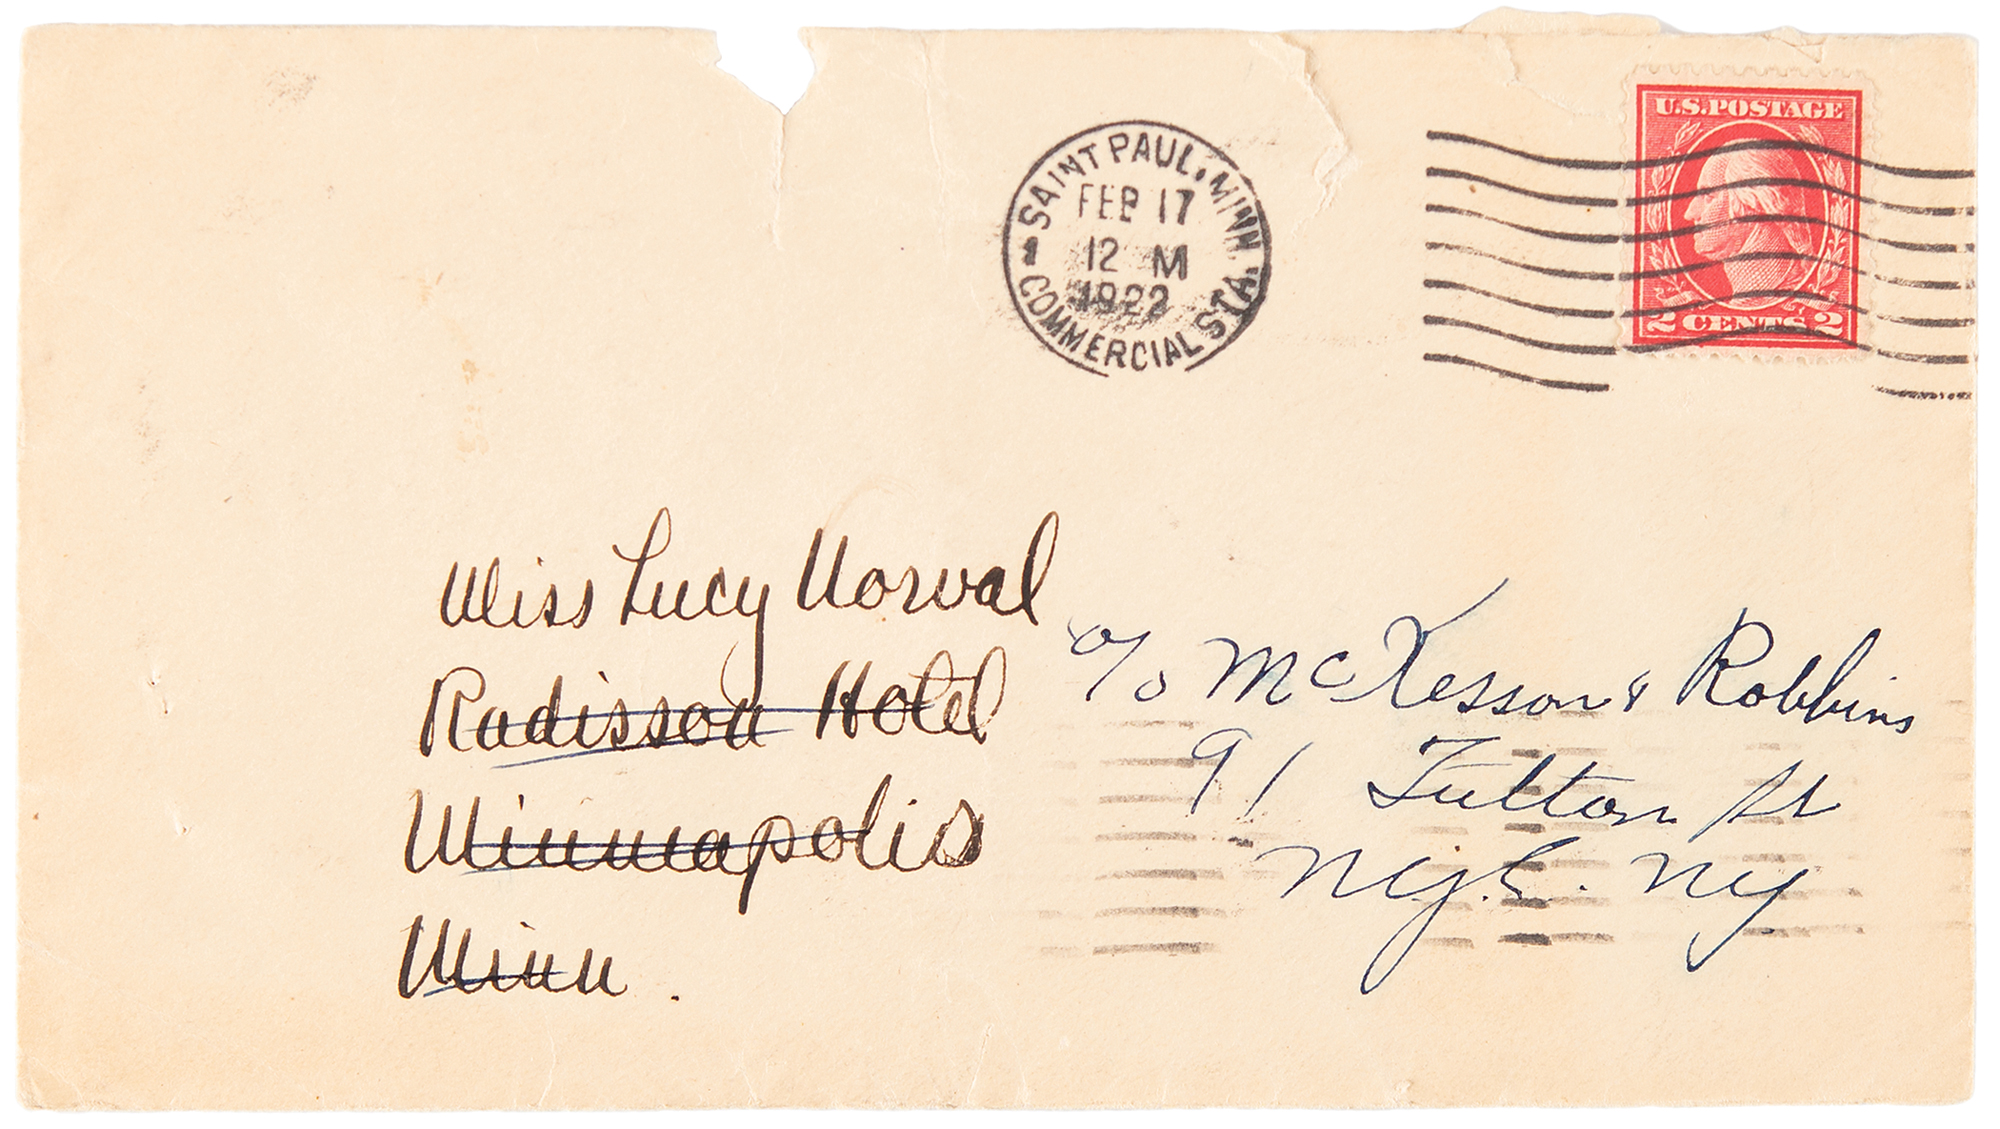 SAINT PAUL, MINN.
FEB 17
12 M
1922
1
COMMERCIAL STA.
U.S. POSTAGE
2 CENTS 2
Miss Lucy Norval
Radisson Hotel
Minneapolis
Minn.
c/o McKesson & Robbins
91 Fulton St
N.Y.C. NY